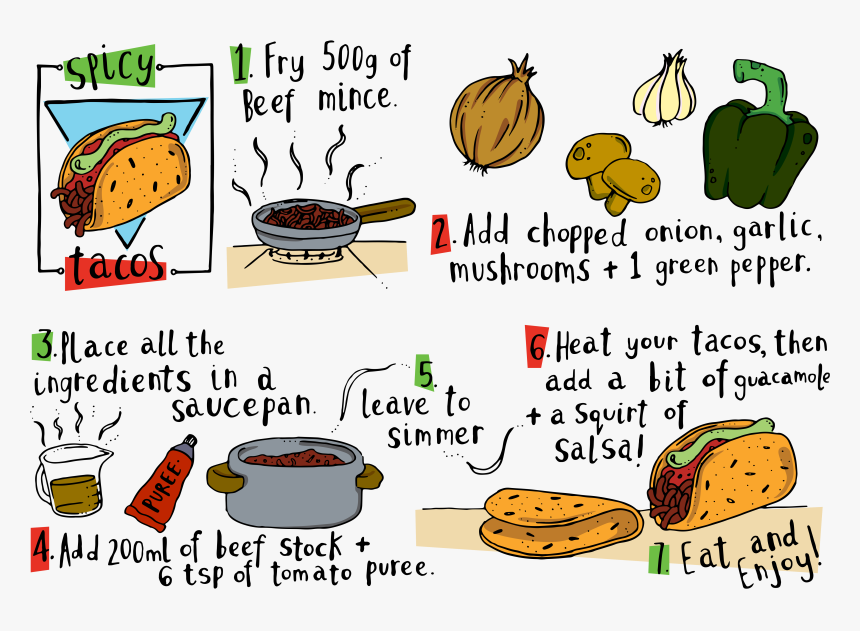 spicy
tacos
1. Fry 500g of
Beef mince.
2. Add chopped onion, garlic,
mushrooms + 1 green pepper.
3. Place all the
ingredients in a
saucepan.
PUREE
4. Add 200ml of beef stock +
6 tsp of tomato puree.
5.
leave to
simmer
6. Heat your tacos, then
add a bit of guacamole
+ a squirt of
salsa!
7. Eat and
Enjoy!